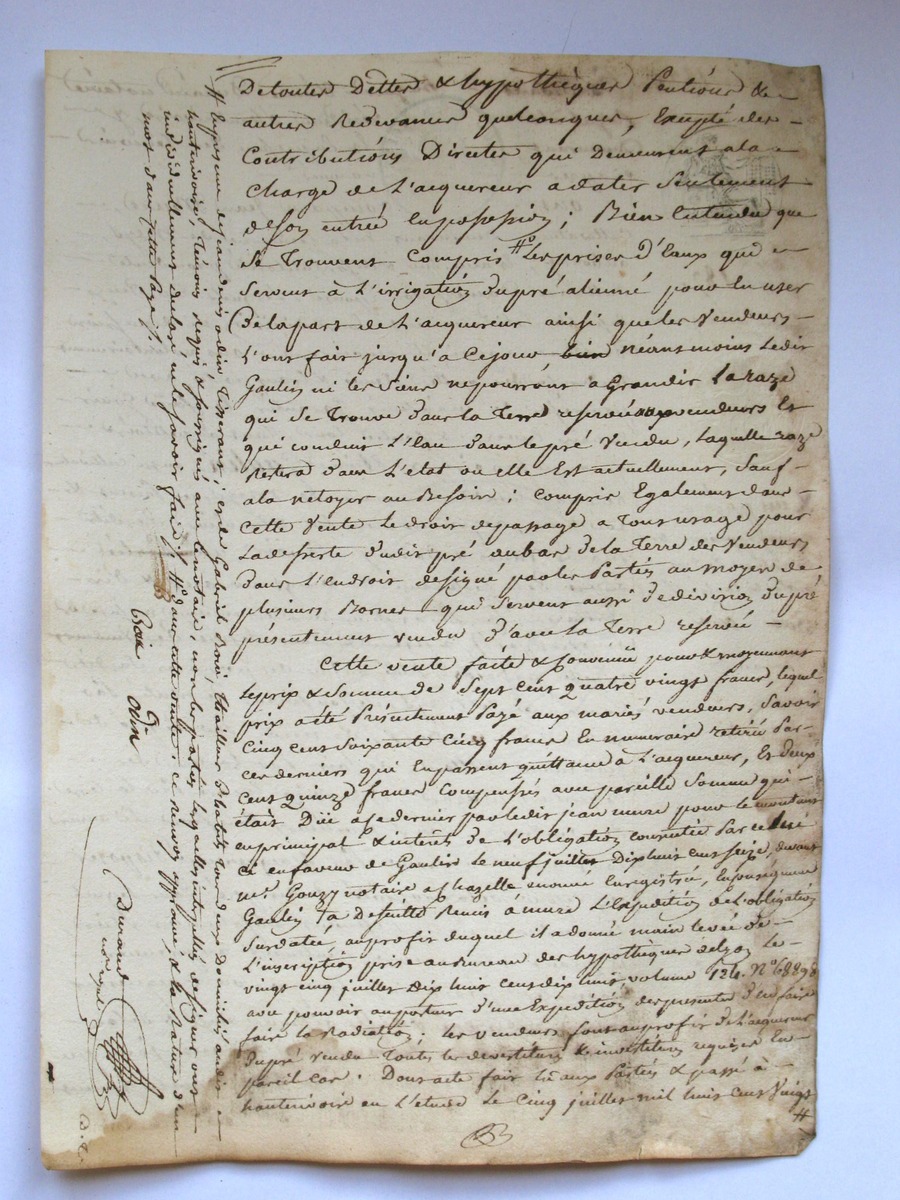 De toutes Dettes & hypothèques Pentions &
autres Redevances quelconques, Excepté des
Contributions Directes qui Demeurent a la
Charge de L'acquereur a dater Seulement
de Son entrée En possession ; Bien Entendu que
Se Trouvent Compris #° Les prises D'Eaux qui
Servent à L'irrigation Du pré aliené pour En user
De la part de L'acquereur ainsi que les Vendeurs
L'ont fait jusqu'a Ce jour néans moins Ledit
Gaulin ni les Siens ne pourront aGrandir La raze
qui Se Trouve Dans La Terre reservée aux vendeurs Et
qui conduit L'Eau Dans le pré Vendu, Laquelle raze
Restera Dans L'état où elle Est actuellement, Sauf
a la netoyer au Besoin ; Compris Egalement dans
Cette Vente Le droit de passage a Tout usage pour
La desserte Dudit pré au bas De la Terre des Vendeurs
Dans L'Endroit designé par les Parties au moyen de
plusieurs Bornes qui Servent aussi De division Du pré
présentement vendu D'avec La Terre reservée
Cette vente faite & Convenüe pour & moyennant
Le prix & Somme de Sept Cent quatre vingt francs, lequel
prix a été Présentement Payé aux mariés vendeurs, Savoir
Cinq cent Soixante Cinq francs En numeraire retiré Par
ces derniers qui En passent quittance à L'acquereur, Et Deux
Cent quinze francs Compensés avec pareille Somme qui
était Düe a Ce dernier par ledit jean mure pour le montant
en principal & intérêts de L'obligation consentie Par
en faveur de Gaulin Le neuf juillet Dix huit cent Seize, devant
me. Gouzy notaire a Chazelle Enregistrée, En conséquence
Gaulin a De Suitte Remis à mure L'Expedition de L'obligation
Sus datée, au profit duquel il a donné main levée de
L'inscription prise au Bureau des hypothèques de Lyon Le
vingt cinq juillet Dix huit Cent dix huit, volume 124. N°.
avec pouvoir au porteur D'une Expedition des presentes D'en faire
faire la Radiation ; les vendeurs font au profit De L'acqereur
Du pré Vendu Toutes les devestitures & investitures requises En
pareil Cas. Dont acte fait Lû aux Parties & passé à
hauterivoire en L'etude Le Cinq juillet mil huit Cent Vingt
#
# En presence de jean denis odin, Tisserant, & de Gabriel Boué Tailleur D'habits Tous deux Domiciliés audit
hauterivoire, Témoins Requis & Soussignés avec le notaire, non les parties lesquelles interpellées de Signer ont
individuellement declaré ne le Savoir faire. #° dans cette vente. ce renvoy approuvé, & la Rature d'un
mot dans cette Page.
Boué Odin
Durand